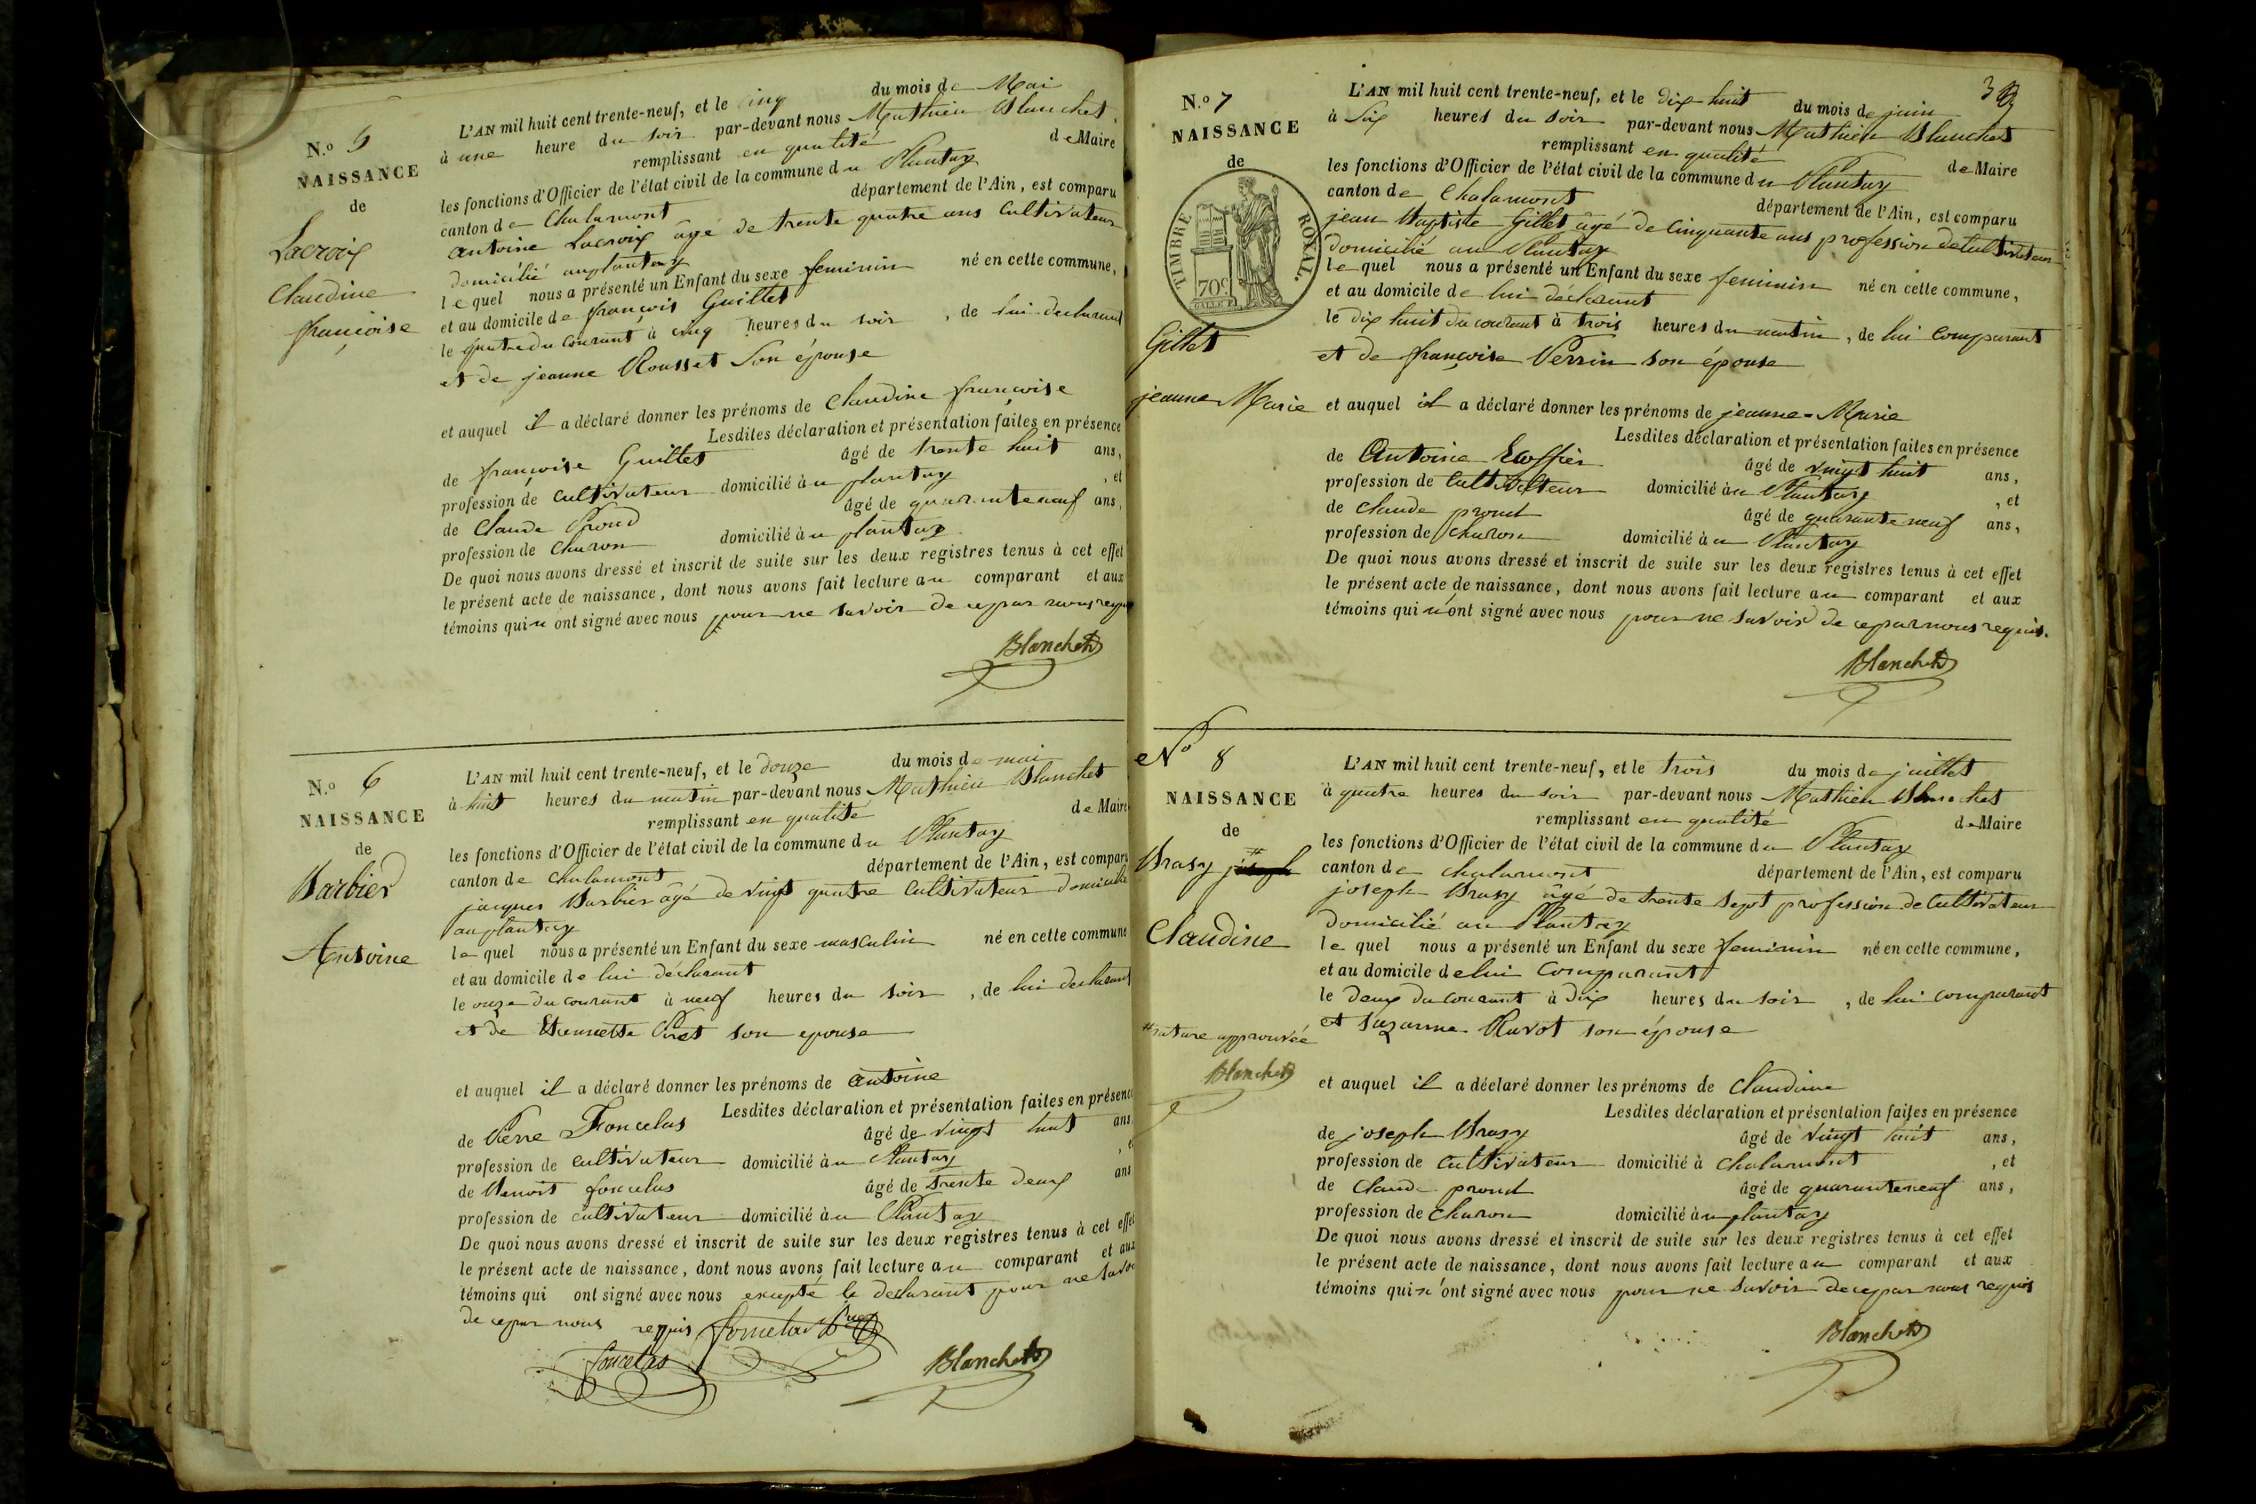 N.º 5
NAISSANCE
de
Lacroix
Claudine
françoise
L'AN mil huit cent trente-neuf, et le cinq du mois de Mai
à une heure du soir par-devant nous Mathieu Blanchet,
remplissant en qualité de Maire
les fonctions d'Officier de l'état civil de la commune du Plantay
canton de Chalamont département de l'Ain, est comparu
antoine Lacroix âgé de trente quatre ans Cultivateur
domicilié au plantay
lequel nous a présenté un Enfant du sexe feminin né en cette commune,
et au domicile de françois Guillet
le quatre du courant à cinq heures du soir, de lui declarant
et de jeanne Rousset Son épouse
et auquel il a déclaré donner les prénoms de Claudine françoise
Lesdites déclaration et présentation faites en présence
de françoise Guillet âgé de trente huit ans,
profession de cultivateur domicilié au plantay, et
de Claude Proud âgé de quarante neuf ans,
profession de charon domicilié au plantay
De quoi nous avons dressé et inscrit de suite sur les deux registres tenus à cet effet
le présent acte de naissance, dont nous avons fait lecture au comparant et aux
témoins qui n ont signé avec nous pour ne savoir de ce par nous requis
Blanchet
N.º 6
NAISSANCE
de
Barbier
Antoine
L'AN mil huit cent trente-neuf, et le douze du mois de mai
à huit heures du matin par-devant nous Mathieu Blanchet
remplissant en qualité de Maire
les fonctions d'Officier de l'état civil de la commune du Plantay
canton de chalamont département de l'Ain, est comparu
jacques Barbier âgé de vingt quatre Cultivateur domicilié
au plantay
lequel nous a présenté un Enfant du sexe masculin né en cette commune
et au domicile de lui déclarant
le onze du courant à neuf heures du soir, de lui declarant
et de Etiennette Piret son epouse
et auquel il a déclaré donner les prénoms de antoine
Lesdites déclaration et présentation faites en présence
de Pierre Foncelas âgé de vingt huit ans
profession de cultivateur domicilié au Plantay, et
de Benoit foncelas âgé de trente deux ans
profession de cultivateur domicilié au Plantay
De quoi nous avons dressé et inscrit de suite sur les deux registres tenus à cet effet
le présent acte de naissance, dont nous avons fait lecture au comparant et aux
témoins qui ont signé avec nous excepté le declarant pour ne savoir
de ce par nous requis foncelas
foncelas Blanchet
N.º 7
NAISSANCE
de
TIMBRE ROYAL.
70c
Gillet
jeanne Marie
L'AN mil huit cent trente-neuf, et le dix huit du mois de juin
à Six heures du soir par-devant nous Mathieu Blanchet
remplissant en qualité de Maire
les fonctions d'Officier de l'état civil de la commune du Plantay
canton de Chalamont département de l'Ain, est comparu
jean Baptiste Gillet âgé de Cinquante ans profession de Cultivateur
domicilié au Plantay
lequel nous a présenté un Enfant du sexe feminin né en cette commune,
et au domicile de lui déclarant
le dix huit du courant à trois heures du matin, de lui comparant
et de françoise Perrin son épouse
et auquel il a déclaré donner les prénoms de jeanne-Marie
Lesdites déclaration et présentation faites en présence
de Antoine Ecoffier âgé de vingt huit ans,
profession de Cultivateur domicilié au Plantay, et
de Claude proud âgé de quarante neuf ans,
profession de Charon domicilié au Plantay
De quoi nous avons dressé et inscrit de suite sur les deux registres tenus à cet effet
le présent acte de naissance, dont nous avons fait lecture au comparant et aux
témoins qui n'ont signé avec nous pour ne savoir de ce par nous requis.
Blanchet
Nº 8
NAISSANCE
de
Brasy joseph
Claudine
rature approuvée
Blanchet
L'AN mil huit cent trente-neuf, et le trois du mois de juillet
à quatre heures du soir par-devant nous Mathieu Blanchet
remplissant en qualité de Maire
les fonctions d'Officier de l'état civil de la commune du Plantay
canton de chalamont département de l'Ain, est comparu
joseph Brasy âgé de trente Sept profession de Cultivateur
domicilié au Plantay
lequel nous a présenté un Enfant du sexe feminin né en cette commune,
et au domicile de lui Comparant
le deux du courant à dix heures du soir, de lui comparant
et Suzanne Ravot son épouse
et auquel il a déclaré donner les prénoms de Claudine
Lesdites déclaration et présentation faites en présence
de joseph Brasy âgé de vingt huit ans,
profession de Cultivateur domicilié à Chalamont, et
de Claude proud âgé de quarante neuf ans,
profession de Charon domicilié au plantay
De quoi nous avons dressé et inscrit de suite sur les deux registres tenus à cet effet
le présent acte de naissance, dont nous avons fait lecture au comparant et aux
témoins qui n'ont signé avec nous pour ne savoir de ce par nous requis
Blanchet